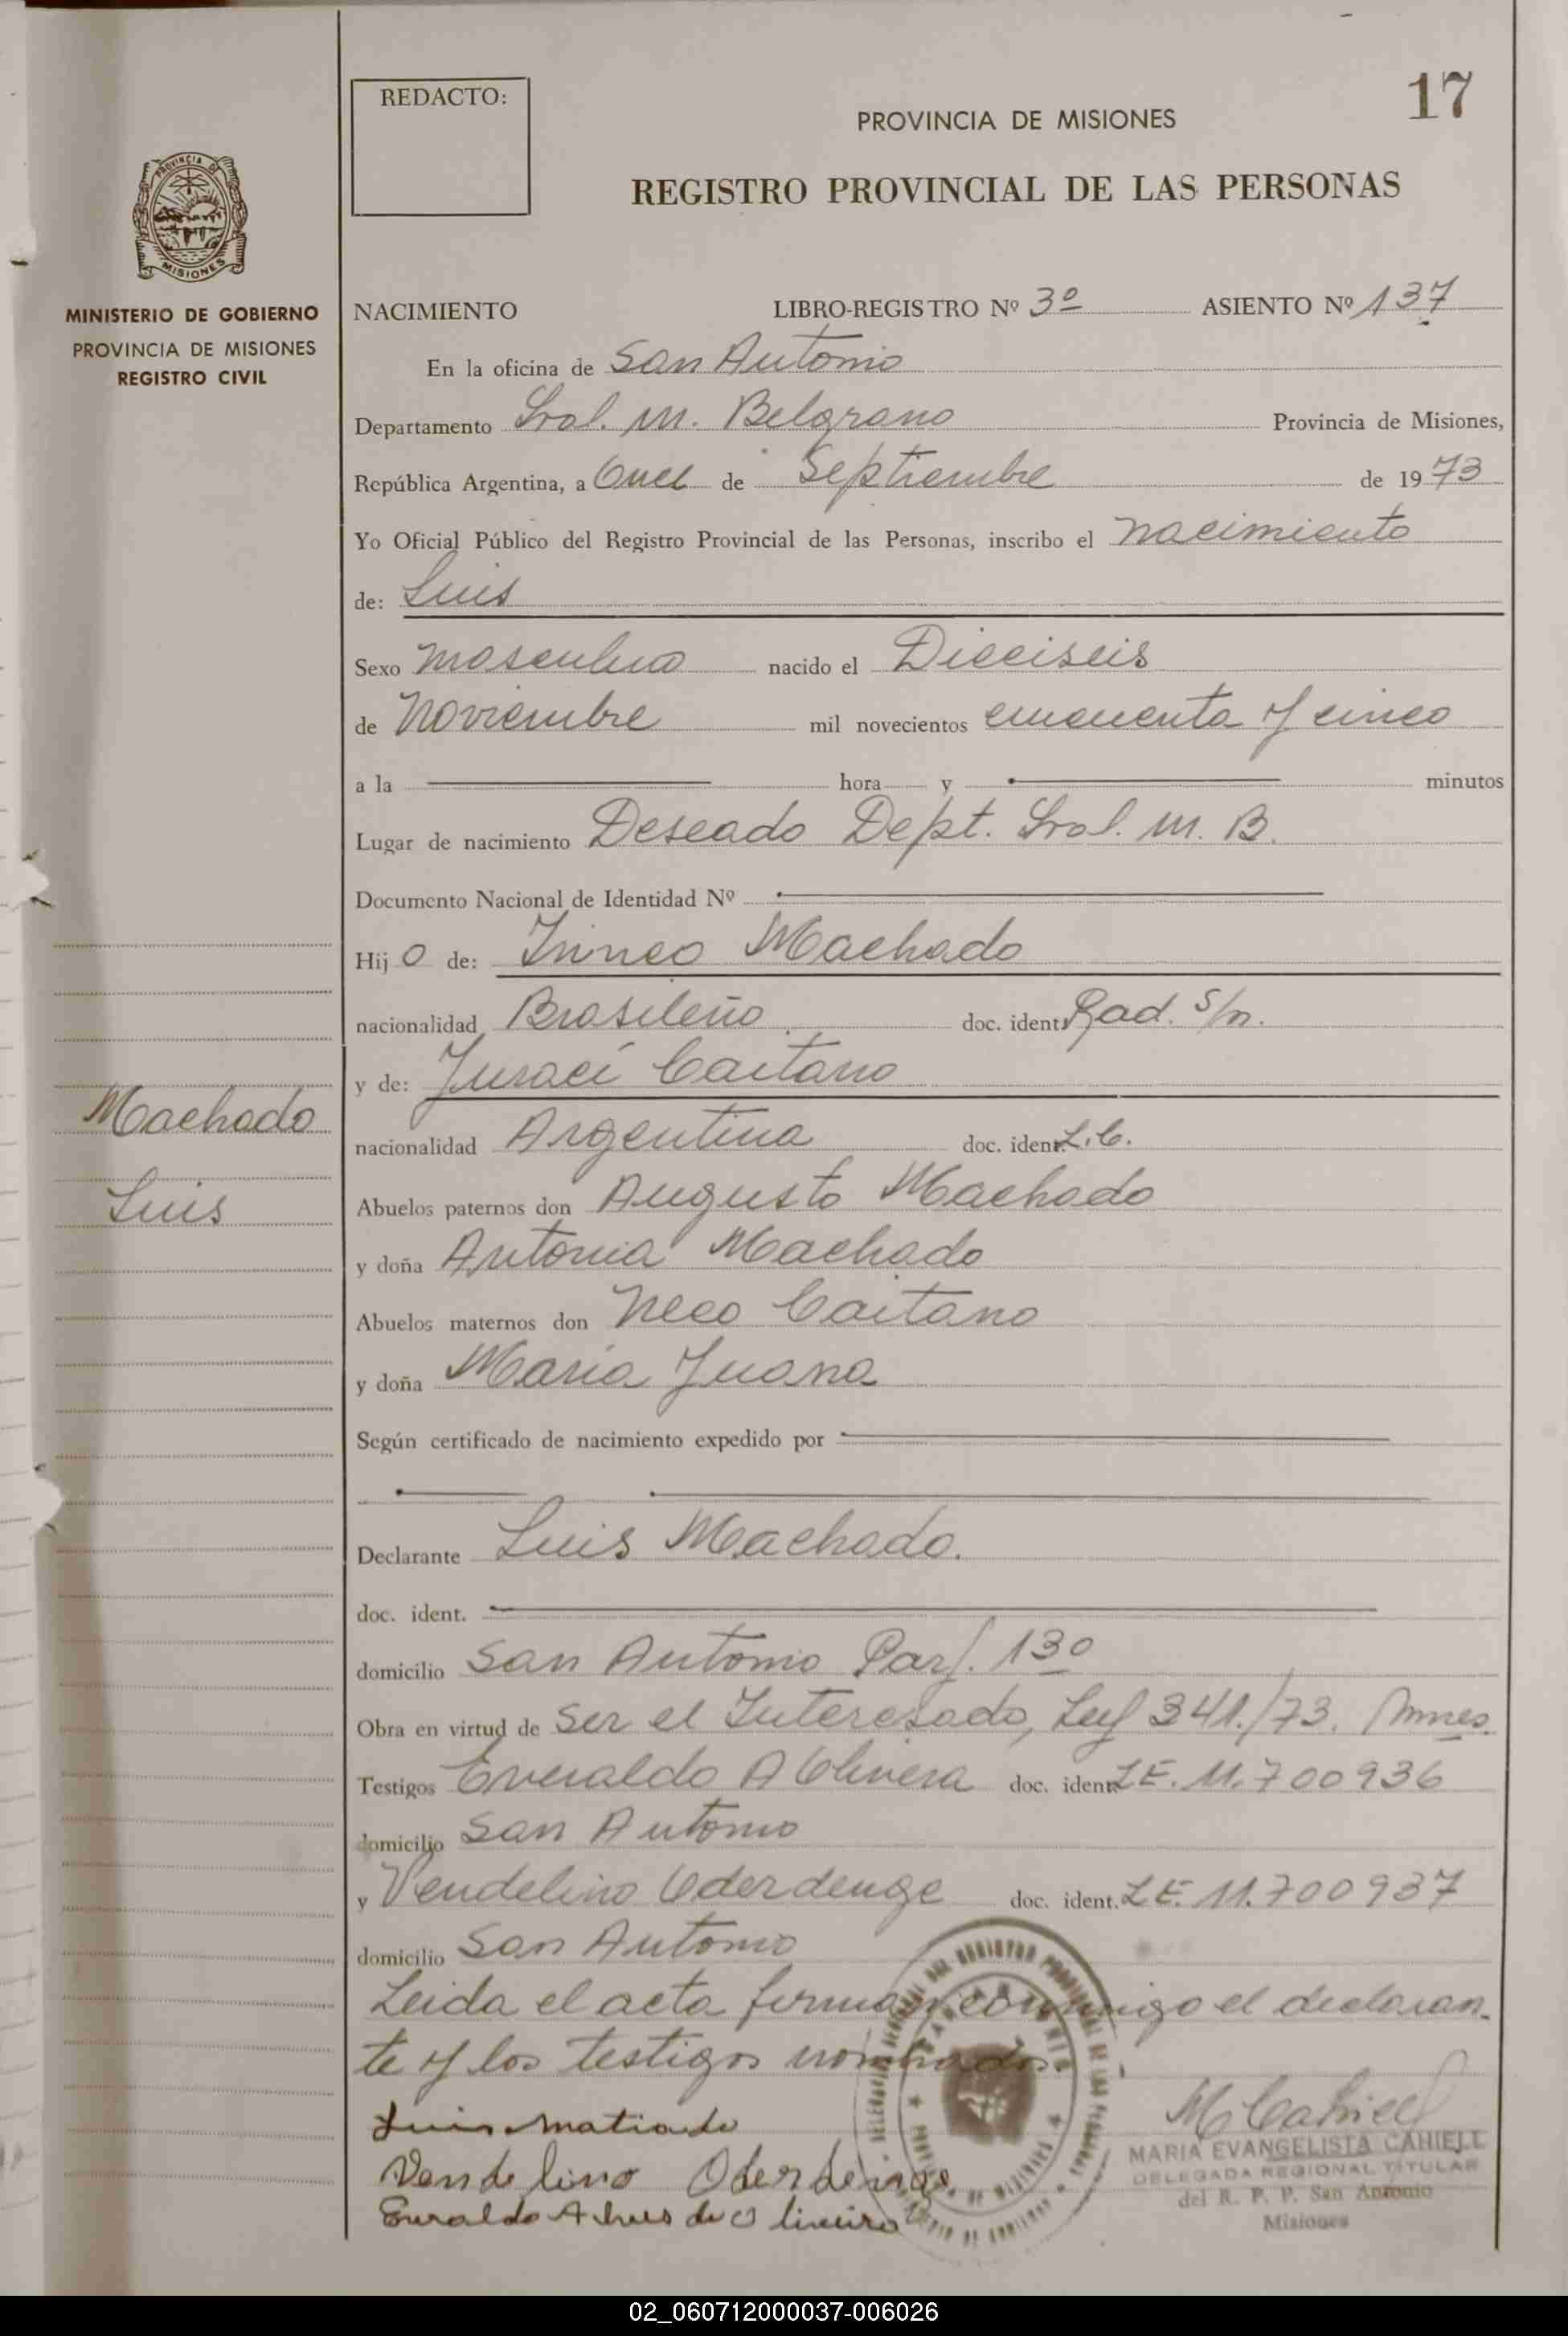 17
REDACTO:
PROVINCIA DE MISIONES
REGISTRO PROVINCIAL DE LAS PERSONAS
PROVINCIA DE
MISIONES
MINISTERIO DE GOBIERNO
PROVINCIA DE MISIONES
REGISTRO CIVIL
NACIMIENTO LIBRO-REGISTRO Nº 3º ASIENTO Nº 137
En la oficina de San Antonio
Departamento Gral. M. Belgrano Provincia de Misiones,
República Argentina, a Once de Septiembre de 1973
Yo Oficial Público del Registro Provincial de las Personas, inscribo el nacimiento
de: Luis
Sexo masculino nacido el Dieciseis
de Noviembre mil novecientos cincuenta y cinco
a la hora y minutos
Lugar de nacimiento Deseado Dept. Gral. M. B.
Documento Nacional de Identidad Nº
Hijo de: Irineo Machado
nacionalidad Brasileño doc. ident. Rad. s/n.
y de: Juraci Caitano
nacionalidad Argentina doc. ident. L.C.
Machado
Luis
Abuelos paternos don Augusto Machado
y doña Antonia Machado
Abuelos maternos don Neco Caitano
y doña Maria Juana
Según certificado de nacimiento expedido por
Declarante Luis Machado.
doc. ident.
domicilio San Antonio Parj. 13º
Obra en virtud de ser el Interesado, Ley 341./73. Mnes.
Testigos Everaldo A Olivera doc. ident. L.E. 11.700936
domicilio San Antonio
y Vendelino Oderdenge doc. ident. L.E. 11.700937
domicilio San Antonio
Leida el acta firman conmigo el declaran-
te y los testigos nombrados.
Luis Matiado
Vendelino Oderdenge
Everaldo Alves de Oliveira
M Cahiell
MARIA EVANGELISTA CAHIELL
DELEGADA REGIONAL TITULAR
del R. P. P. San Antonio
Misiones
02_060712000037-006026